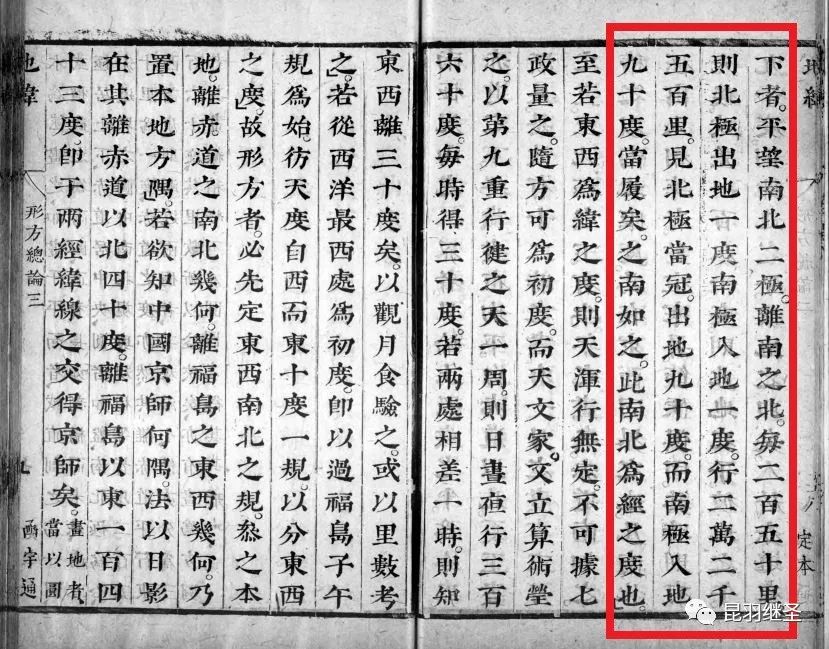 地緯
定本
下者。平望南北二極。離南之北。每二百五十里
則北極出地一度。南極入地一度。行二萬二千
五百里。見北極當冠。出地九十度。而南極入地
九十度。當履矣。之南如之。此南北爲經之度也。
至若東西爲緯之度。則天渾行無定。不可據七
政量之。隨方可爲初度。而天文家文立算術瑩
之。以第九重行徤之天一周。則日晝亱行三百
六十度。每時得三十度。若兩處相差一時。則知
東西離三十度矣。以觀月食驗之。或以里數考
之。若從西洋最西處爲初度。卽以過福島子午
規爲始。彷天度自西而東十度一規。以分東西
之度。故形方者。必先定東西南北之規。叅之本
地。離赤道之南北幾何。離福島之東西幾何。乃
置本地方隅。若欲知中國京師何隅。法以日影
在其離赤道以北四十度。離福島以東一百四
十三度。卽于兩經緯線之交得京師矣。畫地者
當以圖
地緯
形方總論三
九
函宇通
昆羽继圣